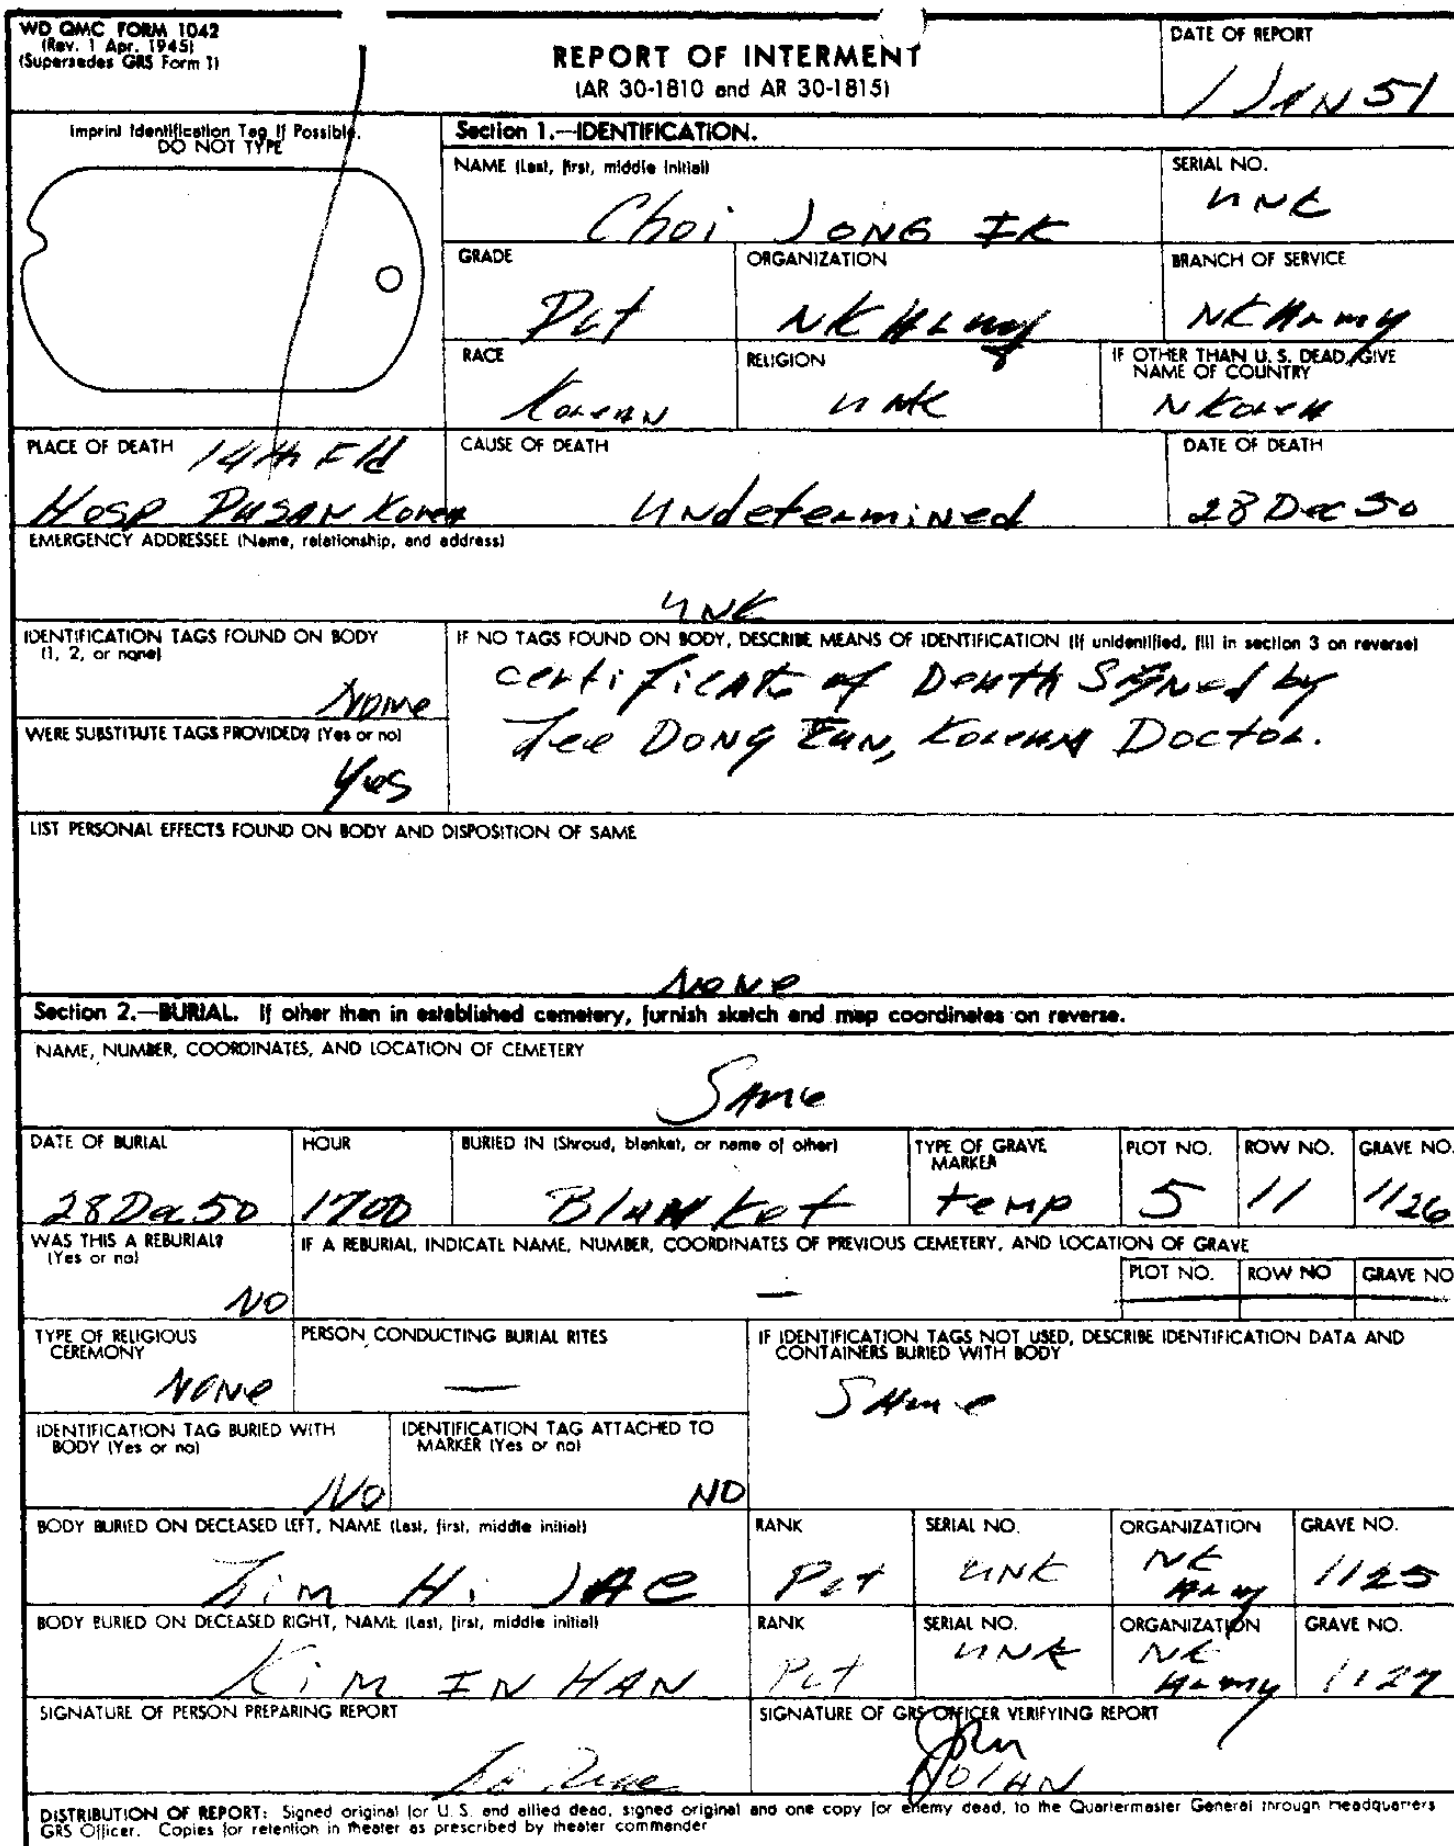 WD QMC FORM 1042
(Rev. 1 Apr. 1945)
(Supersedes GRS Form 1)
REPORT OF INTERMENT
(AR 30-1810 and AR 30-1815)
DATE OF REPORT
1 JAN 51
Imprint Identification Tag If Possible.
DO NOT TYPE
Section 1.—IDENTIFICATION.
NAME (Last, first, middle initial)
Choi JONG IK
SERIAL NO.
UNK
GRADE
Pvt
ORGANIZATION
NK Army
BRANCH OF SERVICE
NK Army
RACE
Korean
RELIGION
UNK
IF OTHER THAN U. S. DEAD, GIVE
NAME OF COUNTRY
N Korea
PLACE OF DEATH 14th Fld
Hosp PUSAN Korea
CAUSE OF DEATH
Undetermined
DATE OF DEATH
28 Dec 50
EMERGENCY ADDRESSEE (Name, relationship, and address)
UNK
IDENTIFICATION TAGS FOUND ON BODY
(1, 2, or none)
None
IF NO TAGS FOUND ON BODY, DESCRIBE MEANS OF IDENTIFICATION (If unidentified, fill in section 3 on reverse)
certificate of Death Signed by
Lee DONG EUN, Korean Doctor.
WERE SUBSTITUTE TAGS PROVIDED? (Yes or no)
Yes
LIST PERSONAL EFFECTS FOUND ON BODY AND DISPOSITION OF SAME
None
Section 2.—BURIAL. If other than in established cemetery, furnish sketch and map coordinates on reverse.
NAME, NUMBER, COORDINATES, AND LOCATION OF CEMETERY
Same
DATE OF BURIAL
28 Dec 50
HOUR
1700
BURIED IN (Shroud, blanket, or name of other)
Blanket
TYPE OF GRAVE
MARKER
temp
PLOT NO.
5
ROW NO.
11
GRAVE NO.
1126
WAS THIS A REBURIAL?
(Yes or no)
NO
IF A REBURIAL, INDICATE NAME, NUMBER, COORDINATES OF PREVIOUS CEMETERY, AND LOCATION OF GRAVE
—
PLOT NO.
ROW NO
GRAVE NO
TYPE OF RELIGIOUS
CEREMONY
None
PERSON CONDUCTING BURIAL RITES
—
IF IDENTIFICATION TAGS NOT USED, DESCRIBE IDENTIFICATION DATA AND
CONTAINERS BURIED WITH BODY
Same
IDENTIFICATION TAG BURIED WITH
BODY (Yes or no)
No
IDENTIFICATION TAG ATTACHED TO
MARKER (Yes or no)
NO
BODY BURIED ON DECEASED LEFT, NAME (Last, first, middle initial)
Kim Hi JAe
RANK
Pvt
SERIAL NO.
UNK
ORGANIZATION
NK
Army
GRAVE NO.
1125
BODY BURIED ON DECEASED RIGHT, NAME (Last, first, middle initial)
KiM IN HAN
RANK
Pvt
SERIAL NO.
UNK
ORGANIZATION
NK
Army
GRAVE NO.
1127
SIGNATURE OF PERSON PREPARING REPORT
SIGNATURE OF GRS OFFICER VERIFYING REPORT
John
NOLAN
DISTRIBUTION OF REPORT: Signed original for U. S. and allied dead, signed original and one copy for enemy dead, to the Quartermaster General through Headquarters
GRS Officer. Copies for retention in theater as prescribed by theater commander